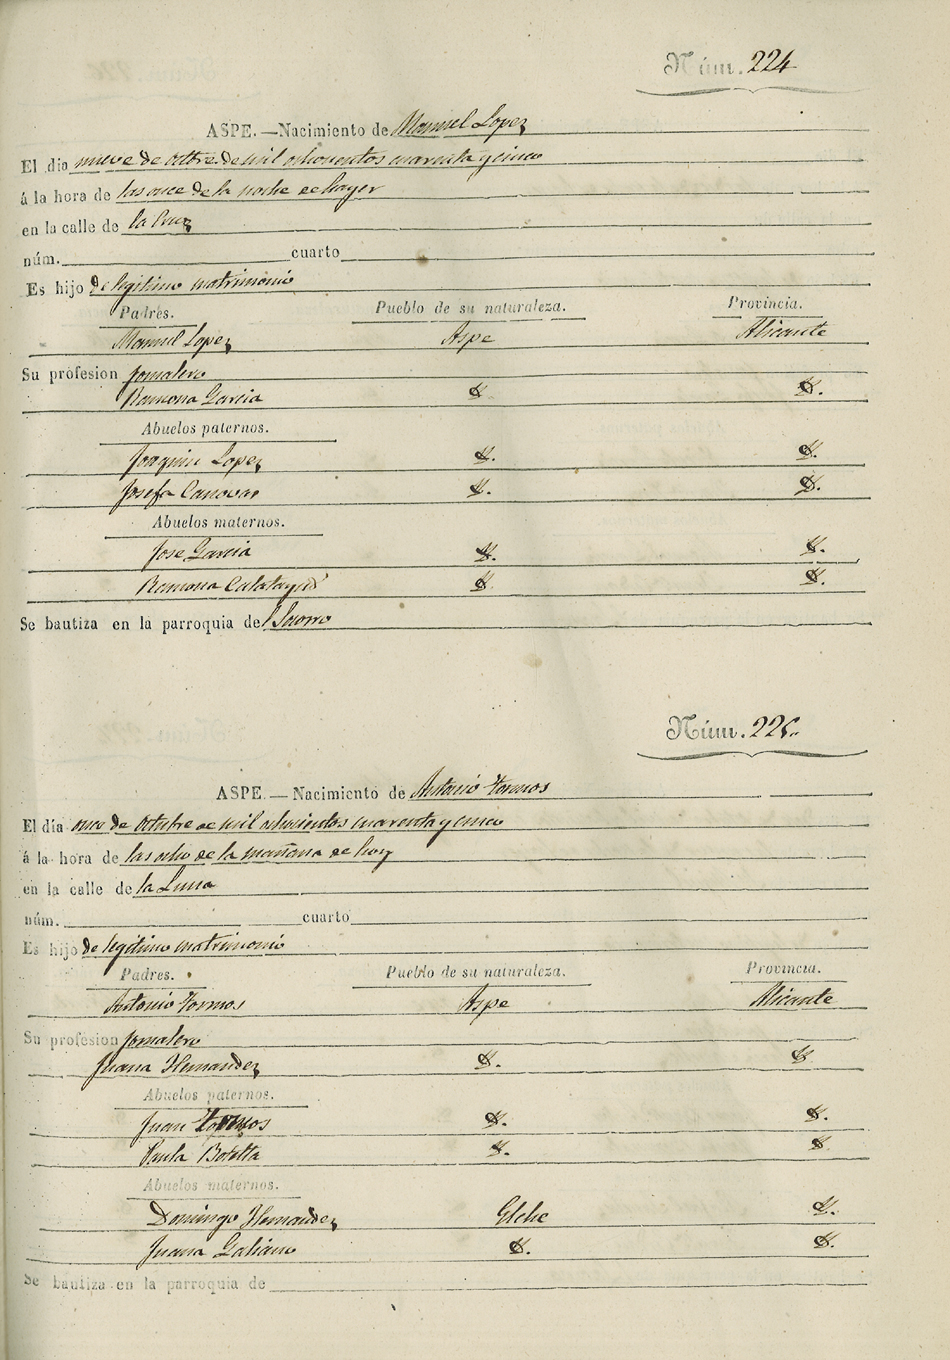 Núm. 224
ASPE.—Nacimiento de Manuel Lopez
El dio nueve de octbre. de mil ochocientos cuarenta y cinco
á la hora de las once de la noche de hayer
en la calle de la Cruz
núm. cuarto
Es hijo de legitimo matrimonio
Padres. Pueblo de su naturaleza. Provincia.
Manuel Lopez Aspe Alicante
Su profesion jornalero
Ramona Garcia Y. Y.
Abuelos paternos.
Joaquin Lopez Y. Y.
Josefa Canovas Y. Y.
Abuelos maternos.
Jose Garcia Y. Y.
Ramona Calatayud Y. Y.
Se bautiza en la parroquia de
Núm. 225.
ASPE.—Nacimiento de Antonio Tormos
El día once de octubre de mil ochocientos cuarenta y cinco
á la hora de las ocho de la mañana de hoy
en la calle de la Luna
núm. cuarto
Es hijo de legitimo matrimonio
Padres. Pueblo de su naturaleza. Provincia.
Antonio Tormos Aspe Alicante
Su profesion jornalero
Juana Hernandez Y. Y.
Abuelos paternos.
Juan Tormos Y. Y.
Paula Botella Y. Y.
Abuelos maternos.
Domingo Hernandez Elche Y.
Juana Galiano Y. Y.
Se bautiza en la parroquia de